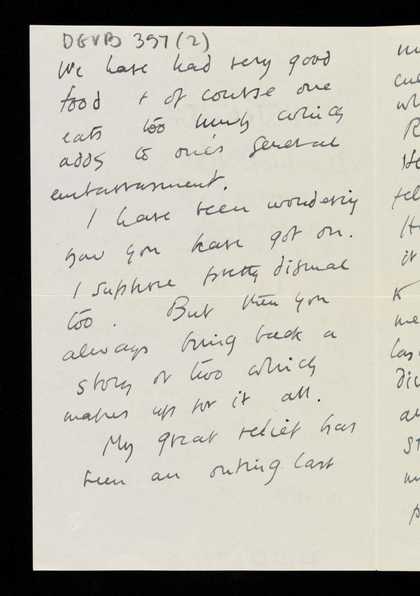 DGVB 397(2)
We have had very good
food + of course one
eats too much which
adds to one's general
embarrassment.
I have been wondering
how you have got on.
I suppose pretty dismal
too. But then you
always bring back a
story or two which
makes up for it all.
My great relief has
been an outing last